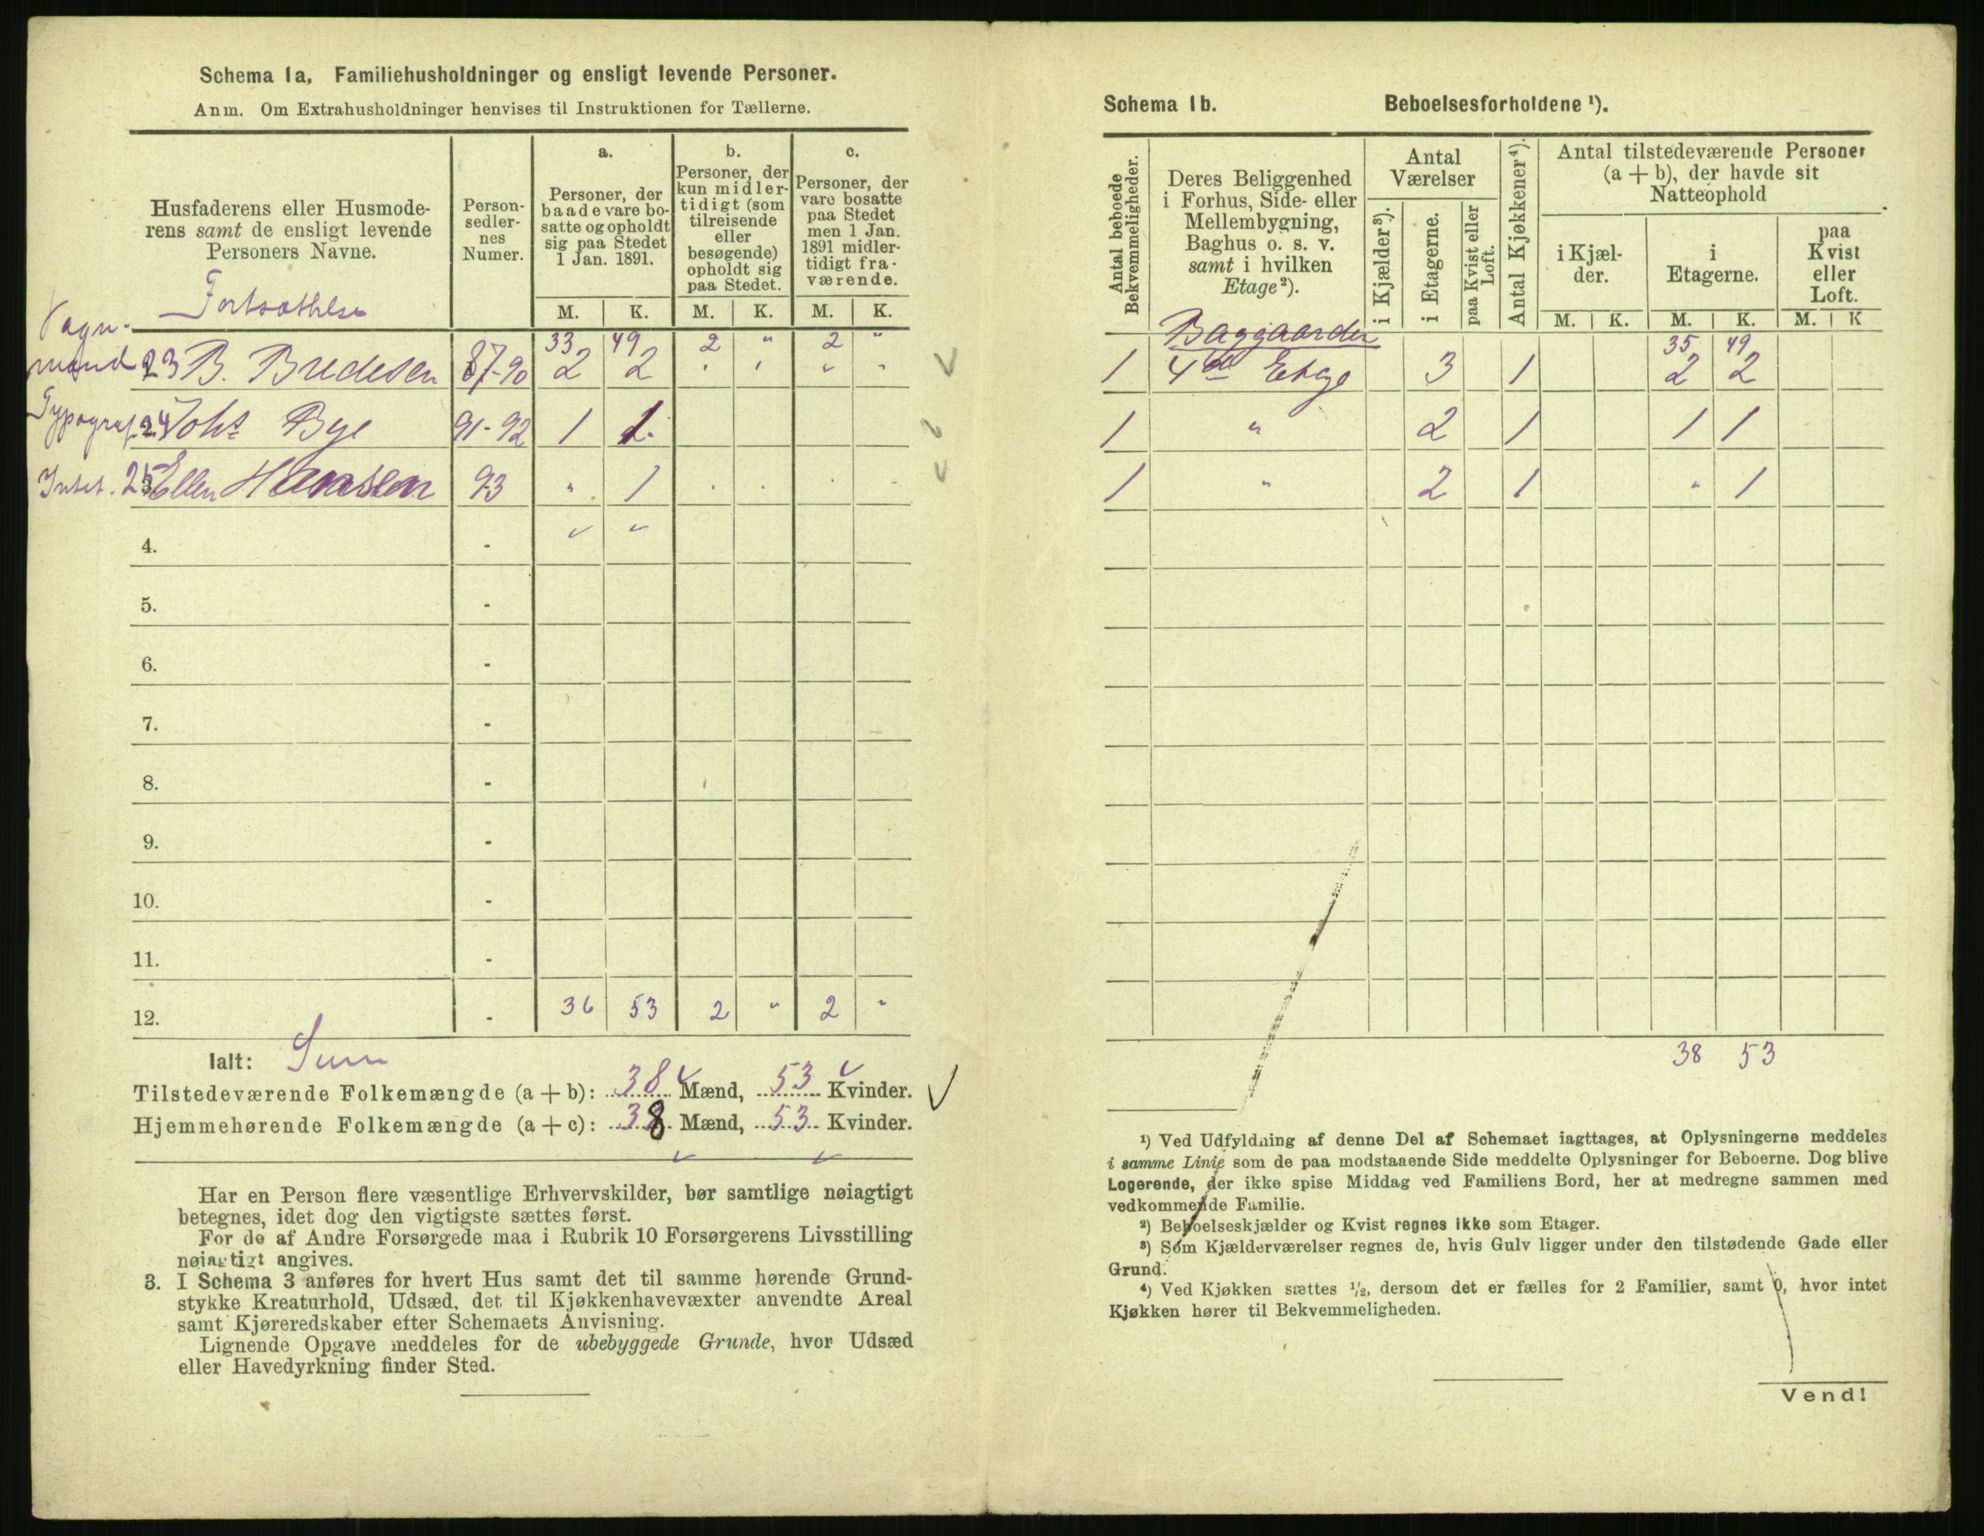 Schema 1a, Familiehusholdninger og ensligt levende Personer.
Anm. Om Extrahusholdninger henvises til Instruktionen for Tællerne.
Husfaderens eller Husmode-
rens samt de ensligt levende
Personers Navne.
Person-
sedler-
nes
Numer.
a.
Personer, der
baade vare bo-
satte og opholdt
sig paa Stedet
1 Jan. 1891.
b.
Personer, der
kun midler-
tidigt (som
tilreisende
eller
besøgende)
opholdt sig
paa Stedet.
c.
Personer, der
vare bosatte
paa Stedet
men 1 Jan.
1891 midler-
tidigt fra-
værende.
M. K. M. K. M. K.
Fortsættelse
33 49 2 " 2 "
Vogn-
mand 23 B. Bredesen 87-90 2 2 " " " "
Typograf. 24 Johs Bye 91-92 1 1.
Intet. 25 Ellen Hansen 93 " 1 . . . .
4. - " "
5. -
6. -
7. -
8. -
9. -
10. -
11. -
12. - 36 53 2 " 2 "
Ialt: Sum
Tilstedeværende Folkemængde (a + b): 38 Mænd, 53 Kvinder.
Hjemmehørende Folkemængde (a + c): 38 Mænd, 53 Kvinder.
Har en Person flere væsentlige Erhvervskilder, bør samtlige nøiagtigt
betegnes, idet dog den vigtigste sættes først.
For de af Andre Forsørgede maa i Rubrik 10 Forsørgerens Livsstilling
nøiagtigt angives.
3. I Schema 3 anføres for hvert Hus samt det til samme hørende Grund-
stykke Kreaturhold, Udsæd, det til Kjøkkenhavevæxter anvendte Areal
samt Kjøreredskaber efter Schemaets Anvisning.
Lignende Opgave meddeles for de ubebyggede Grunde, hvor Udsæd
eller Havedyrkning finder Sted.
Schema 1b. Beboelsesforholdene ¹).
Antal beboede
Bekvemmeligheder.
Deres Beliggenhed
i Forhus, Side- eller
Mellembygning,
Baghus o. s. v.
samt i hvilken
Etage²).
Antal
Værelser
i Kjælder³).
i Etagerne.
paa Kvist eller
Loft.
Antal Kjøkkener⁴).
Antal tilstedeværende Personer
(a + b), der havde sit
Natteophold
i Kjæl-
der.
i
Etagerne.
paa
Kvist
eller
Loft.
M. K. M. K. M. K
Baggaarden 35 49
1 4de Etage 3 1 2 2
1 " 2 1 1 1
1 " 2 1 " 1
38 53
¹) Ved Udfyldning af denne Del af Schemaet iagttages, at Oplysningerne meddeles
i samme Linie som de paa modstaaende Side meddelte Oplysninger for Beboerne. Dog blive
Logerende, der ikke spise Middag ved Familiens Bord, her at medregne sammen med
vedkommende Familie.
²) Beboelseskjælder og Kvist regnes ikke som Etager.
³) Som Kjælderværelser regnes de, hvis Gulv ligger under den tilstødende Gade eller
Grund.
⁴) Ved Kjøkken sættes ¹/₂, dersom det er fælles for 2 Familier, samt 0, hvor intet
Kjøkken hører til Bekvemmeligheden.
Vend!